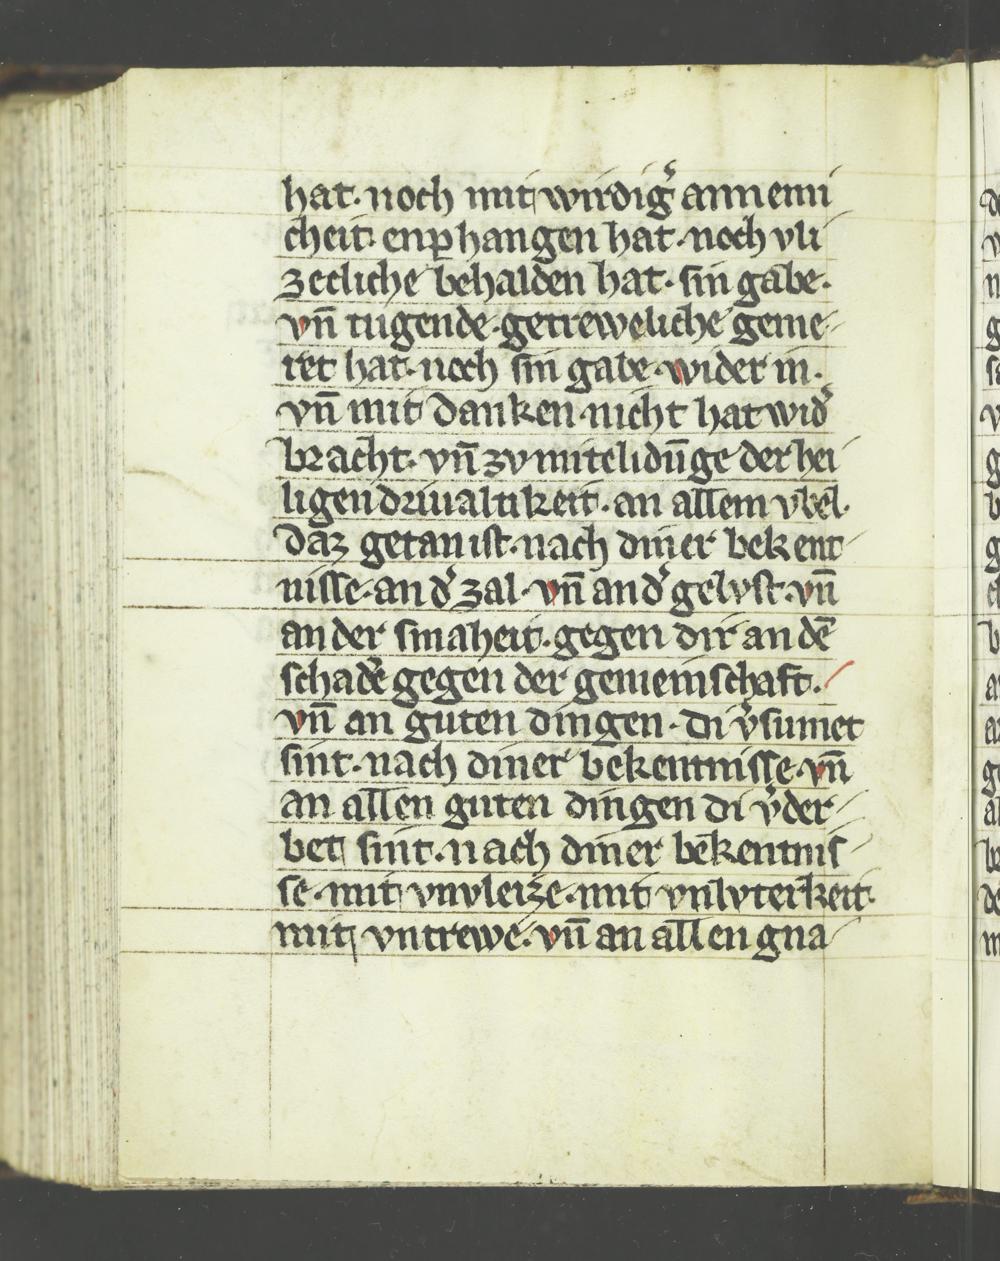 hat· noch mit wirdig᷑ annemi
cheit· enphangen hat· noch vli
zecliche behalden hat· sin gabe·
vn̄ tugende· getreweliche geme-
ret hat· noch sin gabe· wider in·
vn̄ mit danken· nicht hat wid᷑
bracht· vn̄ zv mitelidūge der hei
ligen driualtikeit· an allem vbel·
daz getan ist· nach diner bekent-
nisse· an d᷑ zal· vn̄ an d᷑ gelvst· vn̄
an der smaheit· gegen dir an dē
schadē gegen der gemeinschaft·
vn̄ an guten dingen· di v᷑sumet
sint· nach diner bekentnisse· vn̄
an allen guten dingen di v᷑der-
bet sint· nach diner bekentnis-
se· mit vnvleize· mit vnlvterkeit·
mit vntrewe· vn̄ an allen gna-